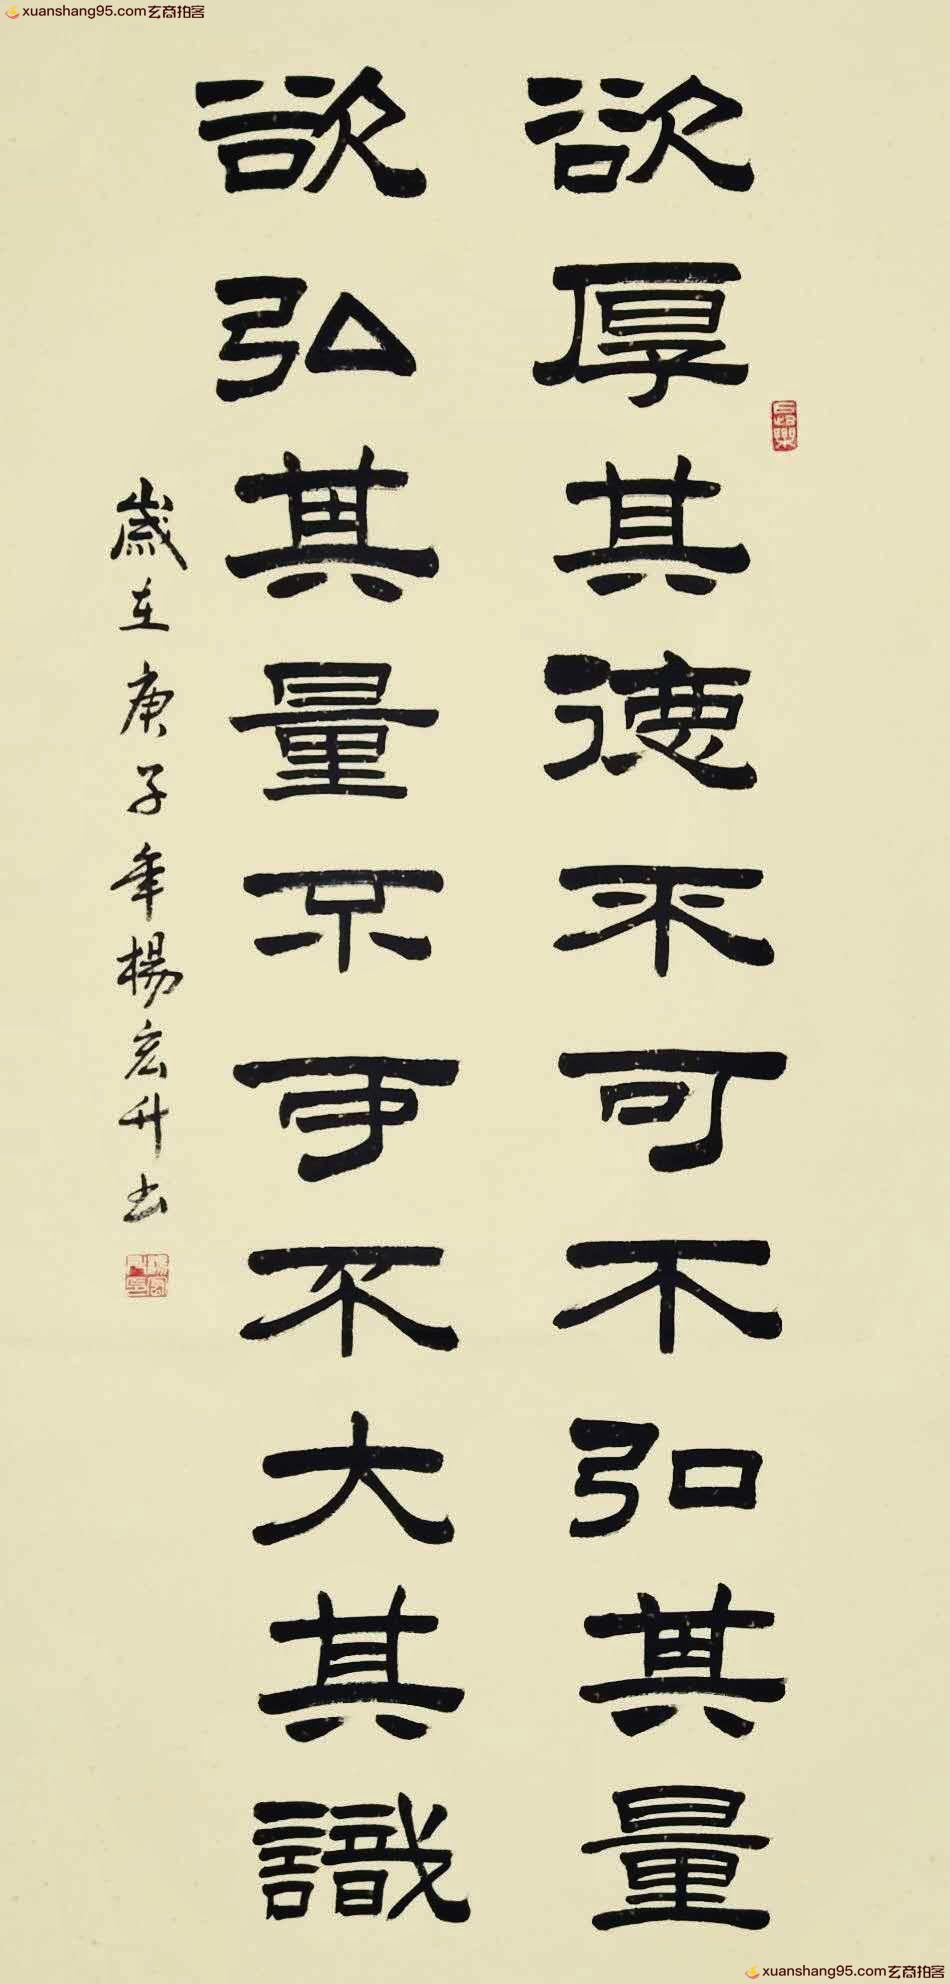 xuanshang95.com玄商拍客
欲厚其德不可不弘其量
欲弘其量不可不大其識
歲在庚子年楊宏升书
xuanshang95.com玄商拍客